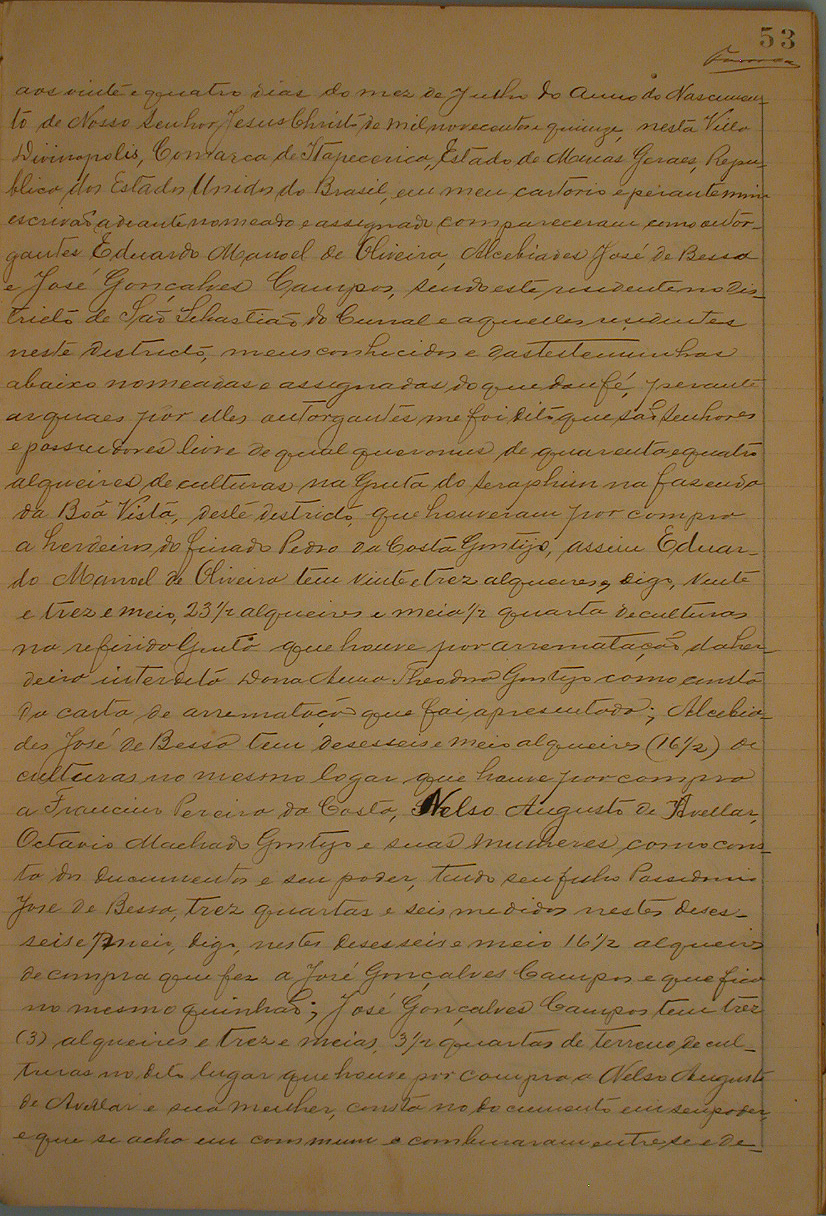 53
aos vinte e quatro dias do mez de Julho do anno do Nascimen-
to de Nosso Senhor Jesus Christo de mil novecentos e quinze, nesta Villa
Divinopolis, Comarca de Itapecerica, Estado de Minas Geraes, Repu-
blica dos Estados Unidos do Brasil, em meu cartorio e perante mim
escrivão adiante nomeado e assignado compareceram como outor-
gantes Eduardo Manoel de Oliveira, Alcebiades José de Bessa
e José Gonçalves Campos, sendo este residente no dis-
tricto de São Sebastião do Curral e aquelles residentes
neste districto, meus conhecidos e das testemunhas
abaixo nomeadas e assignadas do que dou fé, perante
as quaes por elles outorgantes me foi dito que são senhores
e possuidores livre de qualquer onus de quarenta e quatro
alqueires de culturas na Gruta do Seraphim na fasenda
da Boa Vista, deste districto que houveram por compra
a herdeiros do finado Pedro da Costa Gontijo, assim Eduar-
do Manoel de Oliveira tem vinte e trez alqueires, digo, vinte
e trez e meio, 23 1/2 alqueires e meia 1/2 quarta de culturas
na referida Gruta que houve por arrematação da her-
deira interdita Dona Anna Theodora Gontijo como consta
da carta de arrematação que foi apresentada; Alcebia-
des José de Bessa tem deseseis e meio alqueires (16 1/2) de
culturas no mesmo logar que houve por compra
a Pereira da Costa, Nelso Augusto de Avellar,
Octavio Machado Gontijo e suas mulheres, como cons-
ta dos documentos e seu poder, tendo seu filho
José de Bessa, trez quartas e seis medidas nestes deses-
seis e meio, digo, nestes deseseis e meio 16 1/2 alqueires
de compra que fez a José Gonçalves Campos e que fica
no mesmo quinhão; José Gonçalves Campos tem trez
(3) alqueires e trez e meias, 3 1/2 quartas de terreno de cul-
turas no dito lugar que houve por compra a Nelso Augusto
de Avellar e sua mulher, consta no documento em seu poder,
e que se acha em commum e combinaram entre se e de-